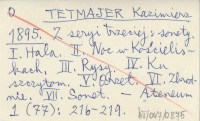 O TETMAJER Kazimierz
1895. Z serji trzeciej: sonety.
I. Hala. II. Noc w Kościelis-
kach, III. Rysy. IV. Ku
szczytom. V. VI.
nie. VII. Sonet. – Ateneum
1 (77): 216-219.